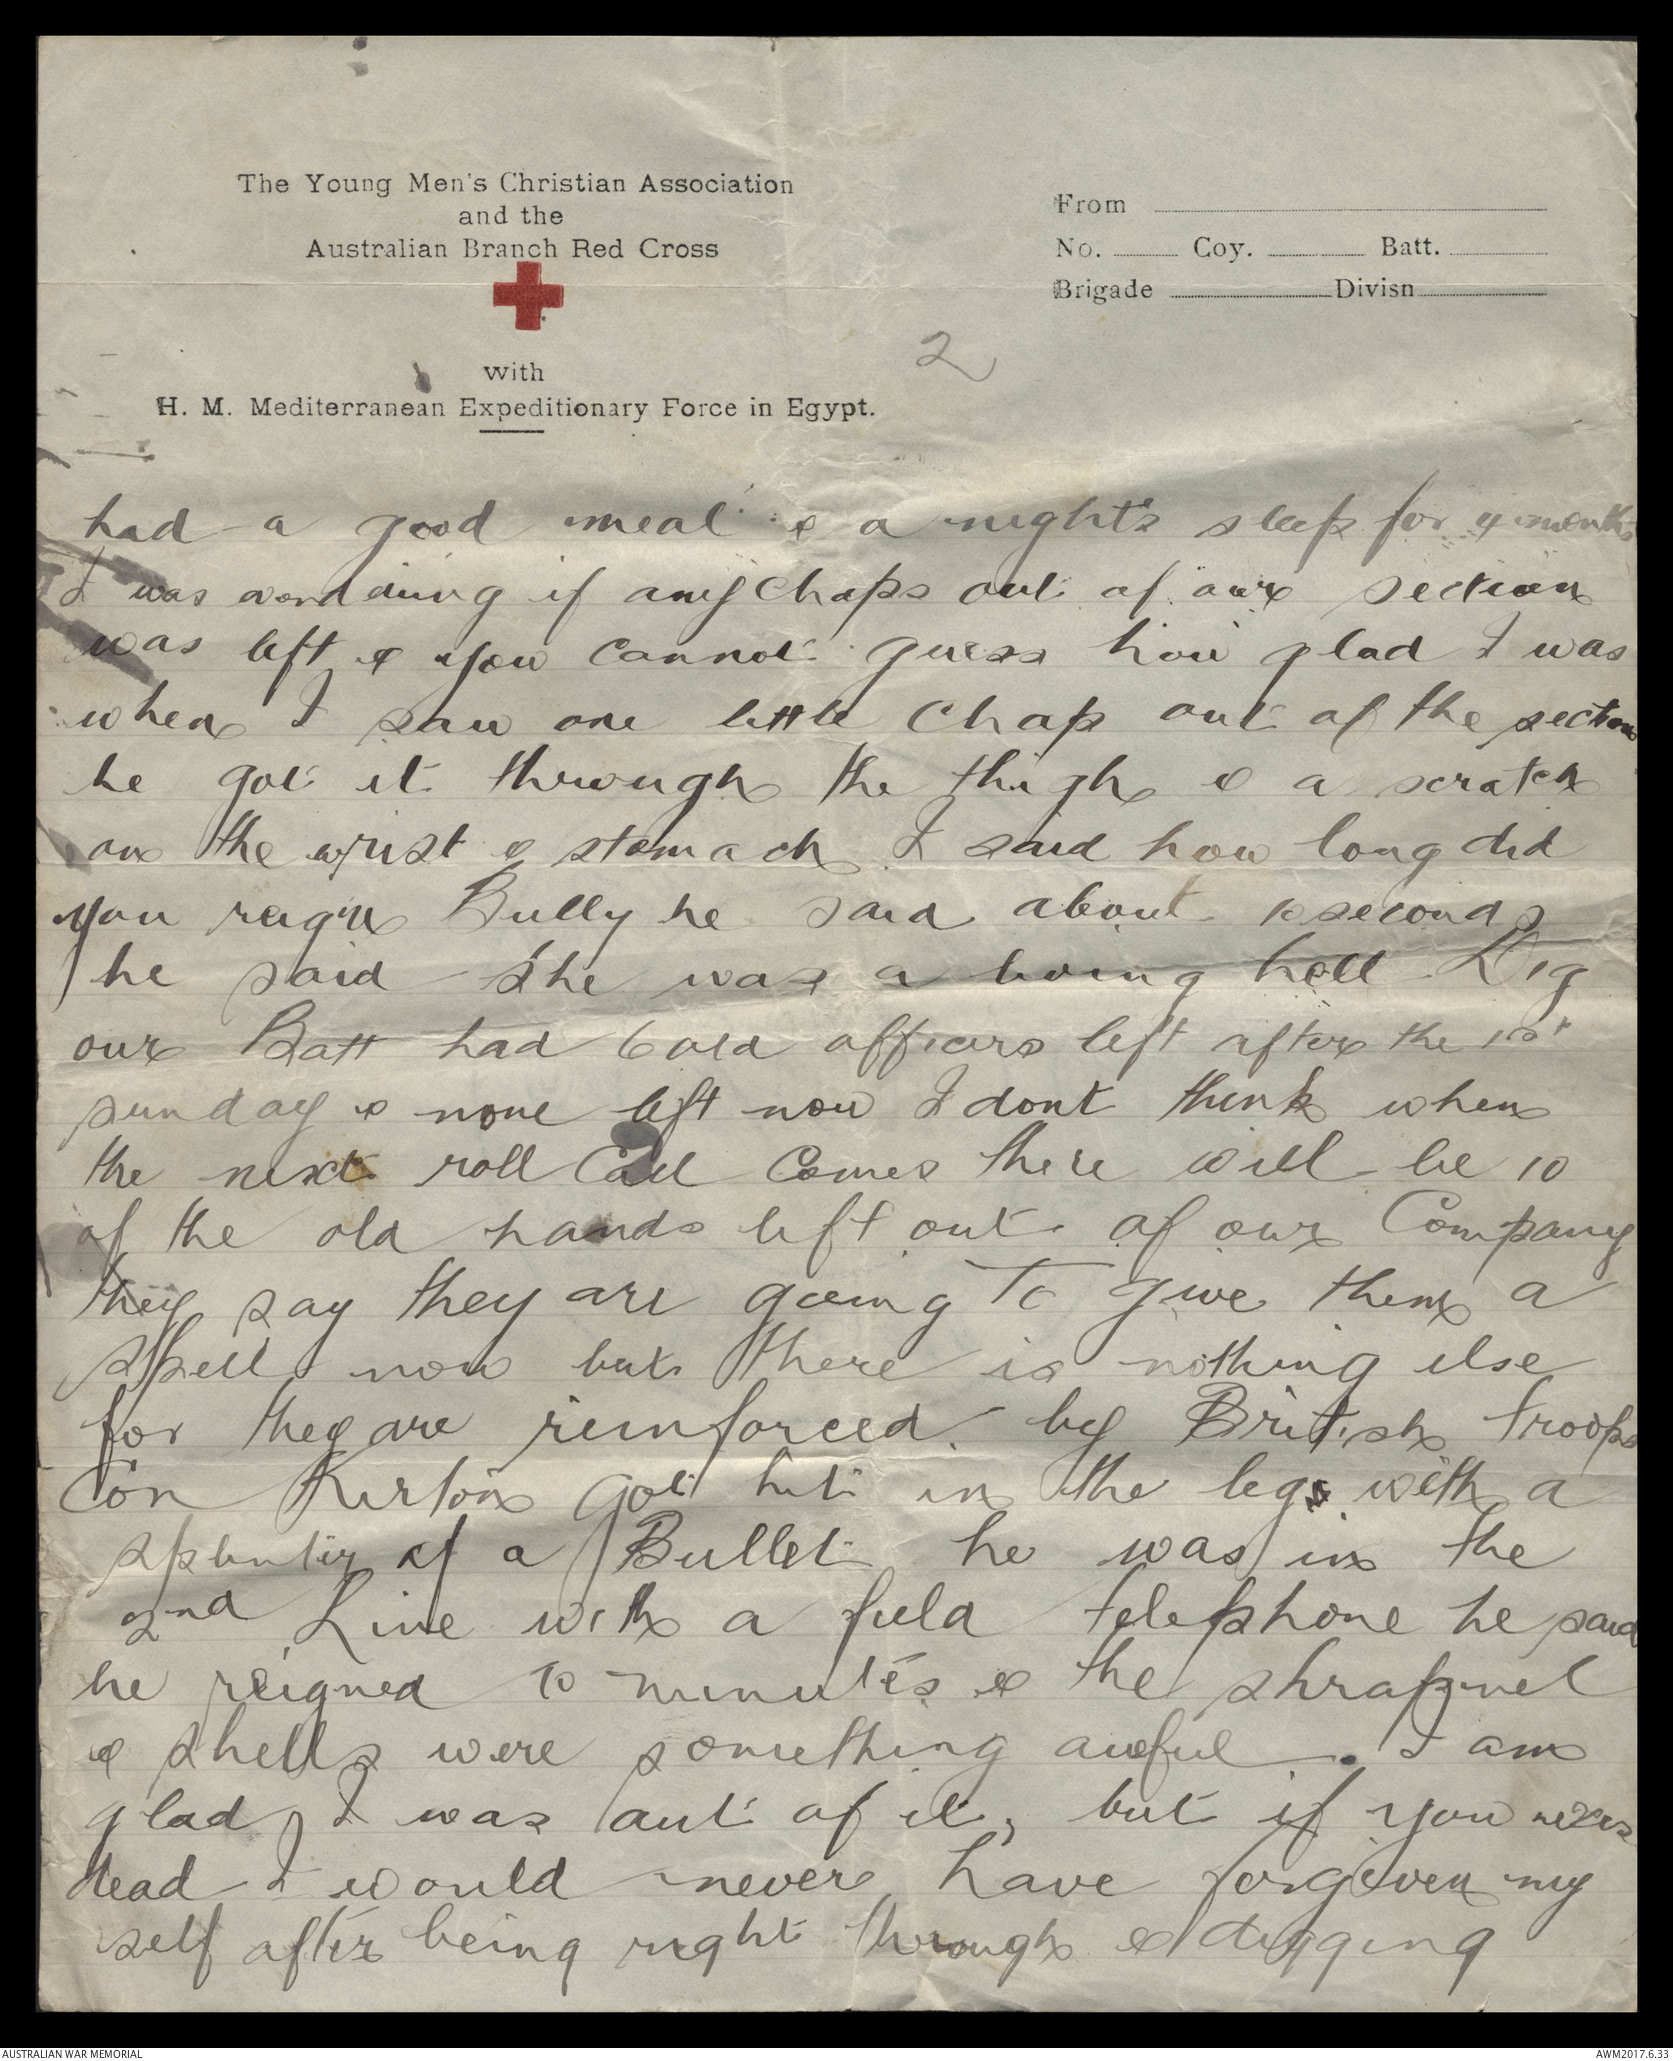 The Young Men's Christian Association
and the
Australian Branch Red Cross
with
H. M. Mediterranean Expeditionary Force in Egypt.
From
No. Coy. Batt.
Brigade Divisn
2
had a good meal & a night's sleep for 4 months
I was wondering if any chaps out of our section
was left & you cannot guess how glad I was
when I saw one little chap out of the section
he got it through the thigh & a scratch
on the wrist & stomach I said how long did
you reign Bully he said about 10 seconds
he said she was a living hell Dig
our Batt had 6 old officers left after the 1st
sunday & none left now I dont think when
the next roll Call Comes there will be 10
of the old hands left out of our Company
they say they are going to give them a
spell now but there is nothing else
for they are reinforced by British troops
Con Kirton got hit in the legs with a
splinter of a Bullet he was in the
2nd Line with a field telephone he said
he reigned 10 minutes & the shrapnel
& shells were something awful. I am
glad I was out of it, but if you were
dead I would never have forgiven my
self after being right through & digging
AUSTRALIAN WAR MEMORIAL
AWM2017.6.33